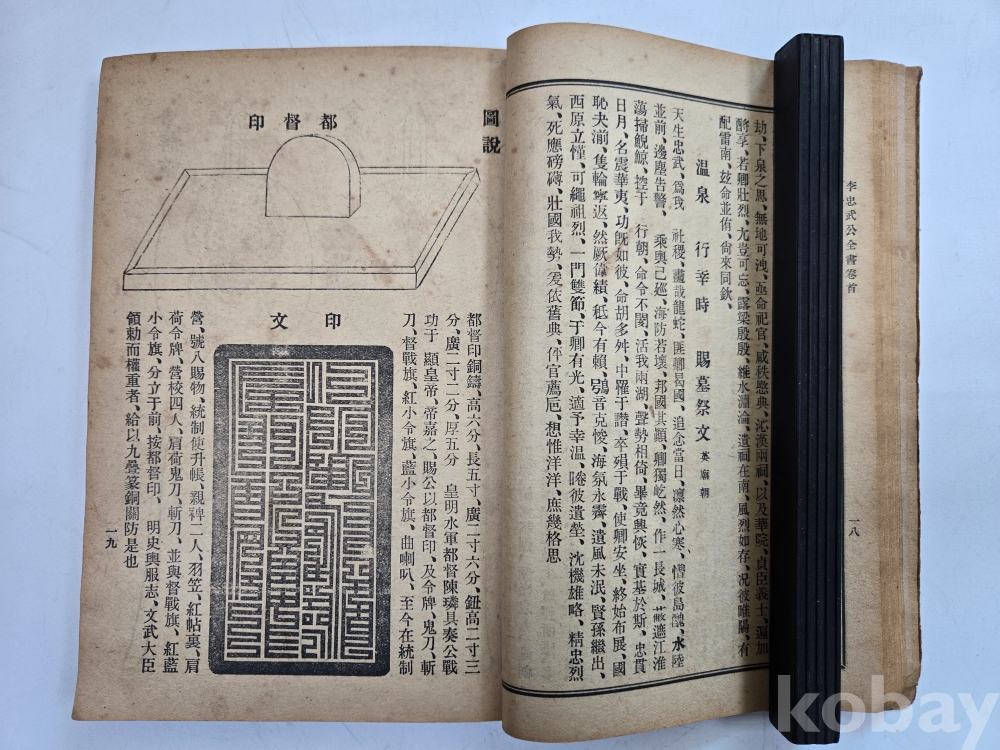 李忠武公全書卷首
一八
劫、下泉之思、無地可洩、亟命祀官、咸秩愍典、沁漢兩祠、以及華院、貞臣義士、遍加
酹享、若卿壯烈、尤豈可忘、露梁殷殷、維水瀰淪、遺祠在南、風烈如存、況彼睢陽、有
配雷南、玆命並侑、尙來同歆、
温泉 行幸時 賜墓祭文 英廟朝
天生忠武、爲我 社稷、 龍蛇、匪卿曷國、追念當日、凜然心寒、懵彼島醜、水陸
並前、邊塵告警、 乘輿已廵、海防若壞、邦國其顚、卿獨屹然、作一長城、 遮江淮
蕩掃鯢鯨、控于 行朝、命令不閡、活我兩湖、聲勢相倚、畢竟興恢、實基於斯、忠貫
日月、名震華夷、功旣如彼、命胡多舛、中罹于讒、卒殞于戰、使卿安坐、終始布展、國
恥夬湔、隻輪寧返、然厥偉績、秪今有賴、鴞音克悛、海氛永霽、遺風未泯、賢孫繼出、
西原立慬、可繩祖烈、一門雙節、于卿有光、適予幸温、睠彼遺塋、沈機雄略、精忠烈
氣、死應磅礴、壯國我勢、爰依舊典、伻官薦巵、想惟洋洋、庶幾格思
圖說
都督印
印文
都督印銅鑄、高六分、長五寸、廣二寸六分、鈕高二寸三
分、廣二寸二分、厚五分 皇明水軍都督陳璘具奏公戰
功于 顯皇帝、帝嘉之、賜公以都督印、及令牌、鬼刀、斬
刀、督戰旗、紅小令旗、藍小令旗、曲喇叭、至今在統制
營、號八賜物、統制使升帳、親裨二人、羽笠、紅帖裏、肩
荷令牌、營校四人、肩荷鬼刀、斬刀、並與督戰旗、紅藍
小令旗、分立于前、按都督印、 明史輿服志、文武大臣
領勅而權重者、給以九疊篆銅關防是也
一九
kobay